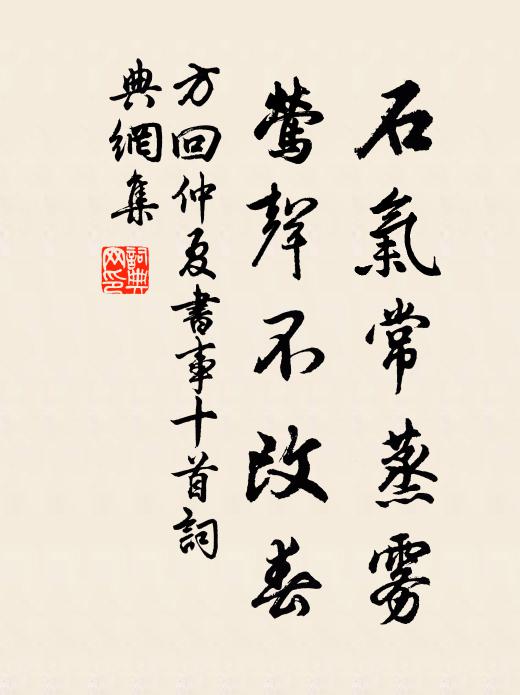 石氣常蒸雾
鶯聲不改春
方回仲夏書事十首詞
典網集
詞典网印